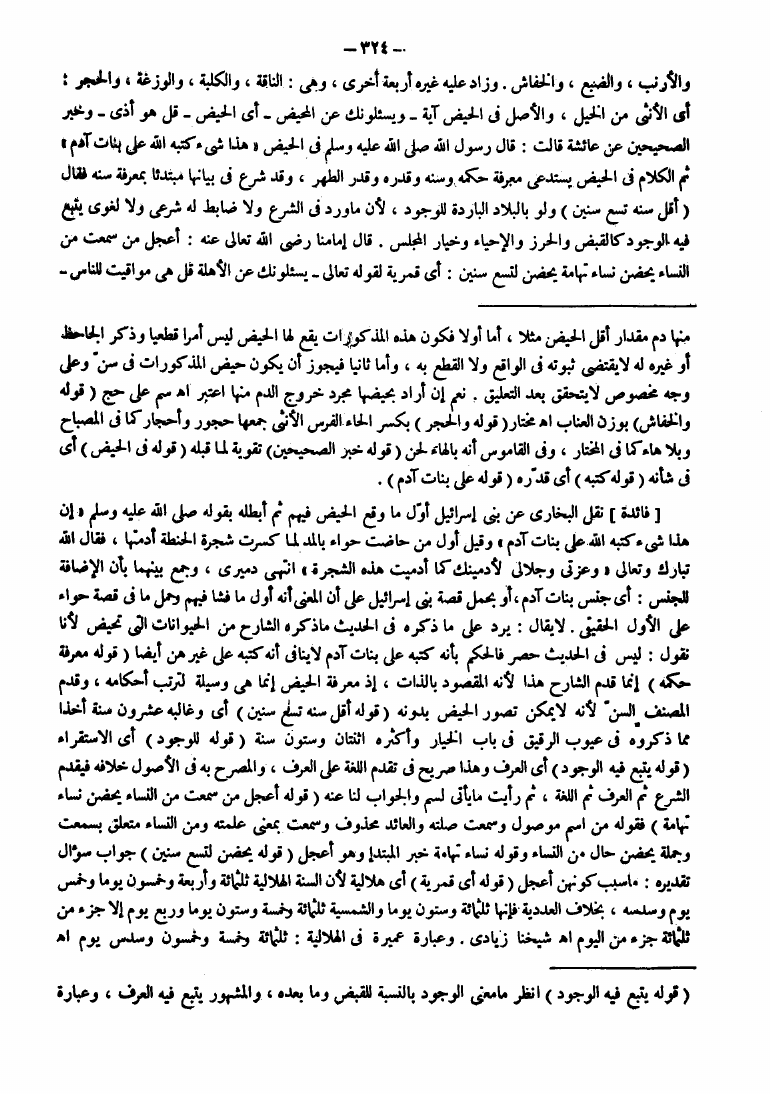 — ٣٢٤ —
والأرنب ، والضبع ، والخفاش . وزاد عليه غيره أربعة أخرى ، وهى : الناقة ، والكلبة ، والوزغة ، والحجر :
أى الأنثى من الخيل ، والأصل فى الحيض آية ـ ويسئلونك عن المحيض ـ أى الحيض ـ قل هو أذى ـ وخبر
الصحيحين عن عائشة قالت : قال رسول الله صلى الله عليه وسلم فى الحيض « هذا شىء كتبه الله على بنات آدم »
ثم الكلام فى الحيض يستدعى معرفة حكمه وسنه وقدره وقدر الطهر ، وقد شرع فى بيانها مبتدئا بمعرفة سنه فقال
( أقل سنه تسع سنين ) ولو بالبلاد الباردة للوجود ، لأن ماورد فى الشرع ولا ضابط له شرعى ولا لغوى يتبع
فيه الوجود كالقبض والحرز والإحياء وخيار المجلس . قال إمامنا رضى الله تعالى عنه : أعجل من سمعت من
النساء يحضن نساء تهامة يحضن لتسع سنين : أى قمرية لقوله تعالى ـ يسئلونك عن الأهلة قل هى مواقيت للناس ـ
منها دم مقدار أقل الحيض مثلا ، أما أولا فكون هذه المذكورات يقع لها الحيض ليس أمرا قطعيا وذكر الجاحظ
أو غيره له لايقتضى ثبوته فى الواقع ولا القطع به ، وأما ثانيا فيجوز أن يكون حيض المذكورات فى سنّ وعلى
وجه مخصوص لايتحقق بعد التعليق . نعم إن أراد بحيضها مجرد خروج الدم منها اعتبر اهـ سم على حج ( قوله
والخفاش ) بوزن العناب اهـ مختار ( قوله والحجر ) بكسر الحاء الفرس الأنثى جمعها حجور وأحجار كما فى المصباح
وبلا هاء كما فى المختار ، وفى القاموس أنه بالهاء لحن ( قوله خبر الصحيحين ) تقوية لما قبله ( قوله فى الحيض ) أى
فى شأنه ( قوله كتبه ) أى قدّره ( قوله على بنات آدم ) .
[ فائدة ] نقل البخارى عن بنى إسرائيل أوّل ما وقع الحيض فيهم ثم أبطله بقوله صلى الله عليه وسلم « إن
هذا شىء كتبه الله على بنات آدم » وقيل أول من حاضت حواء بالمد لما كسرت شجرة الحنطة أدمتها ، فقال الله
تبارك وتعالى « وعزتى وجلالى لأدمينك كما أدميت هذه الشجرة » انتهى دميرى ، وجمع بينهما بأن الإضافة
للجنس : أى جنس بنات آدم ، أو بحمل قصة بنى إسرائيل على أن المعنى أنه أول ما فشا فيهم وحمل ما فى قصة حواء
على الأول الحقيقى . لايقال : يرد على ما ذكره فى الحديث ماذكره الشارح من الحيوانات التى تحيض لأنا
نقول : ليس فى الحديث حصر فالحكم بأنه كتبه على بنات آدم لاينافى أنه كتبه على غيرهن أيضا ( قوله معرفة
حكمه ) إنما قدم الشارح هذا لأنه المقصود بالذات ، إذ معرفة الحيض إنما هى وسيلة لترتب أحكامه ، وقدم
المصنف السنّ لأنه لايمكن تصور الحيض بدونه ( قوله أقل سنه تسع سنين ) أى وغالبه عشرون سنة أخذا
مما ذكروه فى عيوب الرقيق فى باب الخيار وأكثره اثنتان وستون سنة ( قوله للوجود ) أى الاستقراء
( قوله يتبع فيه الوجود ) أى العرف وهذا صريح فى تقدم اللغة على العرف ، والمصرح به فى الأصول خلافه فيقدم
الشرع ثم العرف ثم اللغة ، ثم رأيت مايأتى لسم والجواب لنا عنه ( قوله أعجل من سمعت من النساء يحضن نساء
تهامة ) فقوله من اسم موصول وسمعت صلته والعائد محذوف وسمعت بمعنى علمته ومن النساء متعلق بسمعت
وجملة يحضن حال من النساء وقوله نساء تهامة خبر المبتدإ وهو أعجل ( قوله يحضن لتسع سنين ) جواب سؤال
تقديره : ماسبب كونهن أعجل ( قوله أى قمرية ) أى هلالية لأن السنة الهلالية ثلثمائة وأربعة وخمسون يوما وخمس
يوم وسدسه ، بخلاف العددية فإنها ثلثمائة وستون يوما والشمسية ثلثمائة وخمسة وستون يوما وربع يوم إلا جزء من
ثلثمائة جزء من اليوم اهـ شيخنا زيادى . وعبارة عميرة فى الهلالية : ثلثمائة وخمسة وخمسون وسدس يوم اهـ
( قوله يتبع فيه الوجود ) انظر مامعنى الوجود بالنسبة للقبض وما بعده ، والمشهور يتبع فيه العرف ، وعبارة